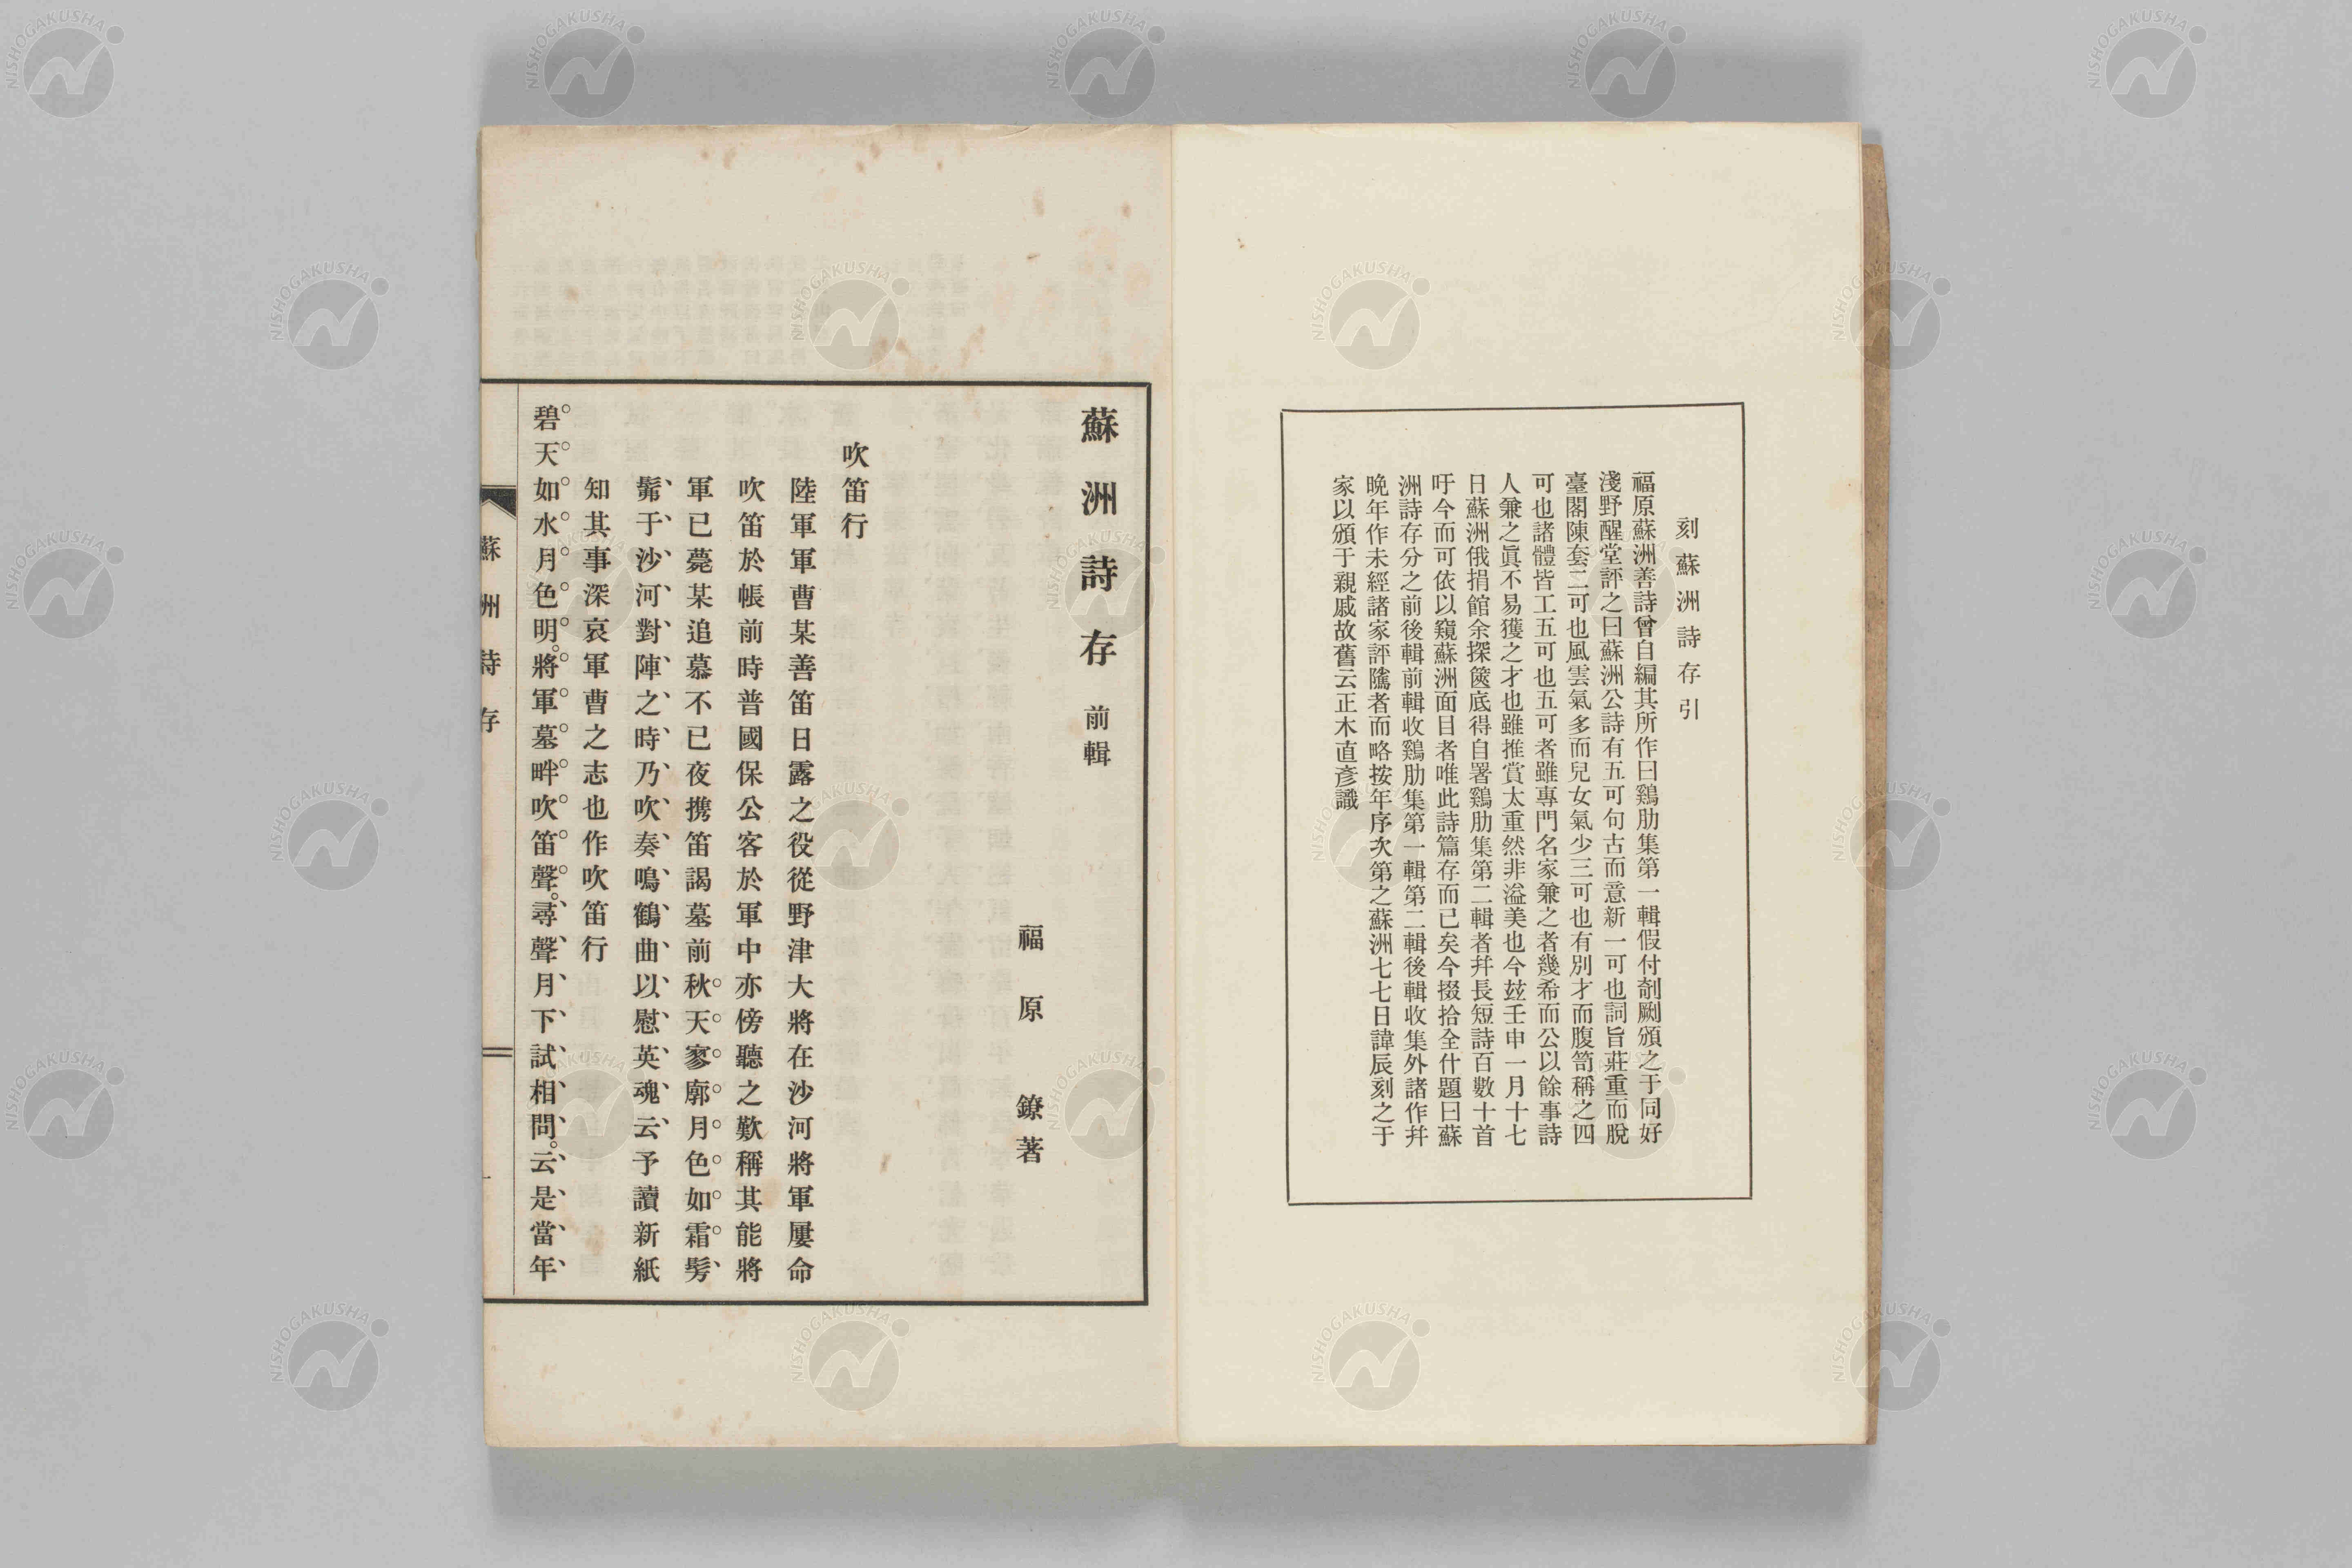 刻蘇洲詩存引
福原蘇洲善詩曾自編其所作曰鷄肋集第一輯假付剞劂頒之于同好
淺野醒堂評之曰蘇洲公詩有五可句古而意新一可也詞旨莊重而脫
臺閣陳套二可也風雲氣多而兒女氣少三可也有別才而腹笥稱之四
可也諸體皆工五可也五可者雖專門名家兼之者幾希而公以餘事詩
人兼之眞不易獲之才也雖推賞太重然非溢美也今玆壬申一月十七
日蘇洲俄捐館余探篋底得自署鷄肋集第二輯者幷長短詩百數十首
吁今而可依以窺蘇洲面目者唯此詩篇存而已矣今掇拾全什題曰蘇
洲詩存分之前後輯前輯收鷄肋集第一輯第二輯後輯收集外諸作幷
晩年作未經諸家評隲者而略按年序次第之蘇洲七七日諱辰刻之于
家以頒于親戚故舊云正木直彥識
蘇洲詩存 前輯
福原鐐著
吹笛行
陸軍軍曹某善笛日露之役從野津大將在沙河將軍屢命
吹笛於帳前時普國保公客於軍中亦傍聽之歎稱其能將
軍已薨某追慕不已夜携笛謁墓前秋天寥廓月色如霜髣
髴于沙河對陣之時乃吹奏鳴鶴曲以慰英魂云予讀新紙
知其事深哀軍曹之志也作吹笛行
碧天如水月色明。將軍墓畔吹笛聲。尋聲月下試相問。云是當年
蘇洲詩存
一
NISHOGAKUSHA